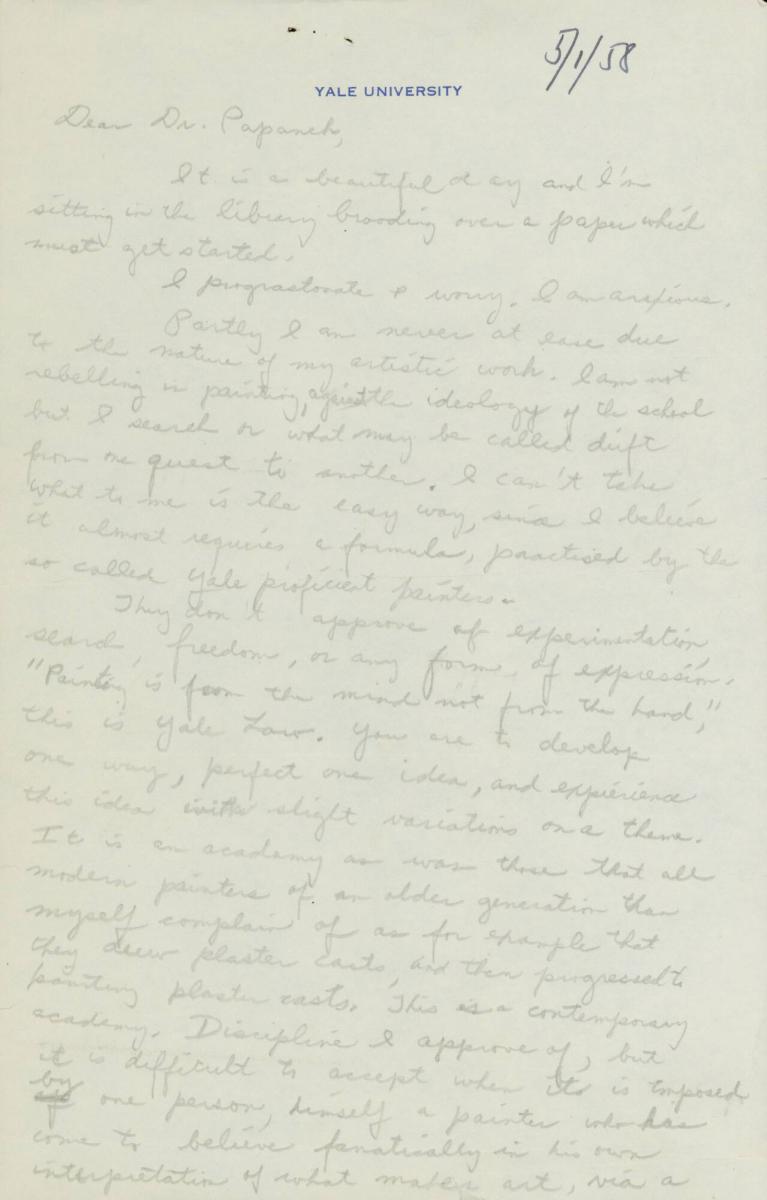 5/1/58
YALE UNIVERSITY
Dear Dr. Papanek,
It is a beautiful day and I'm
sitting in the library brooding over a paper which
must get started.
I prograstonate & worry. I am anxious.
Partly I am never at ease due
to the nature of my artistic work. I am not
rebelling in painting, against the ideology of the school
but I search or what may be called drift
from one quest to another. I can't take
what to me is the easy way, since I believe
it almost requires a formula, practised by the
so called Yale proficient painters.
They don't approve of experimentation
search, freedom, or any form of expression.
"Painting is from the mind not from the hand,"
this is Yale Law. You are to develop
one way, perfect one idea, and experience
this idea with slight variations on a theme.
It is an academy as was those that all
modern painters of an older generation than
myself complain of as for example that
they drew plaster casts, and then progressed to
painting plaster casts. This is a contemporary
academy. Discipline I approve of, but
it is difficult to accept when its is imposed
by one person, himself a painter who has
come to believe fanatically in his own
interpretation of what makes art, via a